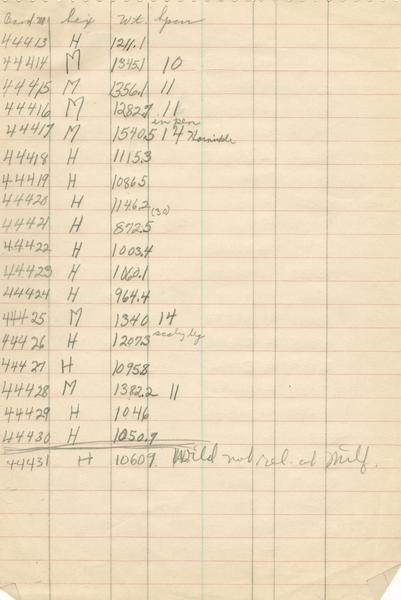 Band No Sex Wt. Spur
44413 H 1211.1
44414 M 1345.1 10
44415 M 1356.1 11
44416 M 1282.7 11
in pen
44417 M 1540.5 14
44418 H 1115.3
44419 H 1086.5
44420 H 1146.2
(30)
44421 H 872.5
44422 H 1003.4
44423 H 1060.1
44424 H 964.4
44425 M 1340 14
scaly leg
44426 H 1207.3
44427 H 1095.8
44428 M 1382.2 11
44429 H 1046
44430 H 1050.9
44431 H 1060.9 Wild not rel. at Milf.